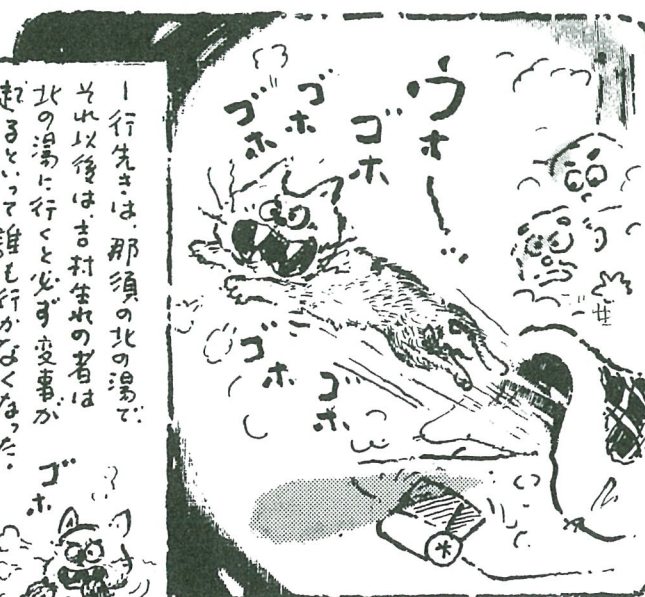 ウオー
ゴホ
ゴホ
ゴホ
ゴホ
ゴホ
一行先きは、那須の北の湯で、
それ以後は、吉村生れの者は
北の湯に行くと必ず変事が
起るといって誰も行かなくなった。
ゴホ